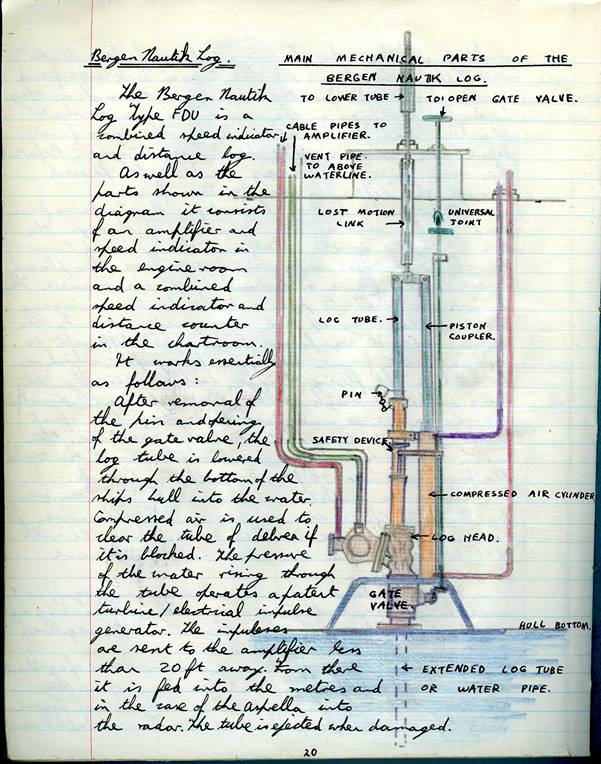 Bergen Nautik Log.
MAIN MECHANICAL PARTS OF THE
BERGEN NAUTIK LOG.
The Bergen Nautik
Log Type FDU is a
combined speed indicator
and distance log.
As well as the
parts shown in the
diagram it consists
of an amplifier and
speed indicator in
the engine room
and a combined
speed indicator and
distance counter
in the chartroom.
It works essentially
as follows:
After removal of
the pin and opening
of the gate valve, the
log tube is lowered
through the bottom of the
ships hull into the water.
Compressed air is used to
clear the tube of debree if
it is blocked. The pressure
of the water rising through
the tube operates a patent
turbine/electrical impulse
generator. The impulses
are sent to the amplifier less
than 20ft away. From there
it is fed into the metres and
in the case of the Aspella into
the radar. The tube is ejected when damaged.
TO LOWER TUBE
TO OPEN GATE VALVE.
CABLE PIPES TO
AMPLIFIER.
VENT PIPE
TO ABOVE
WATERLINE.
LOST MOTION
LINK
UNIVERSAL
JOINT
LOG TUBE.
PISTON
COUPLER.
PIN
SAFETY DEVICE
COMPRESSED AIR CYLINDER
LOG HEAD.
GATE
VALVE.
HULL BOTTOM.
EXTENDED LOG TUBE
OR WATER PIPE.
20